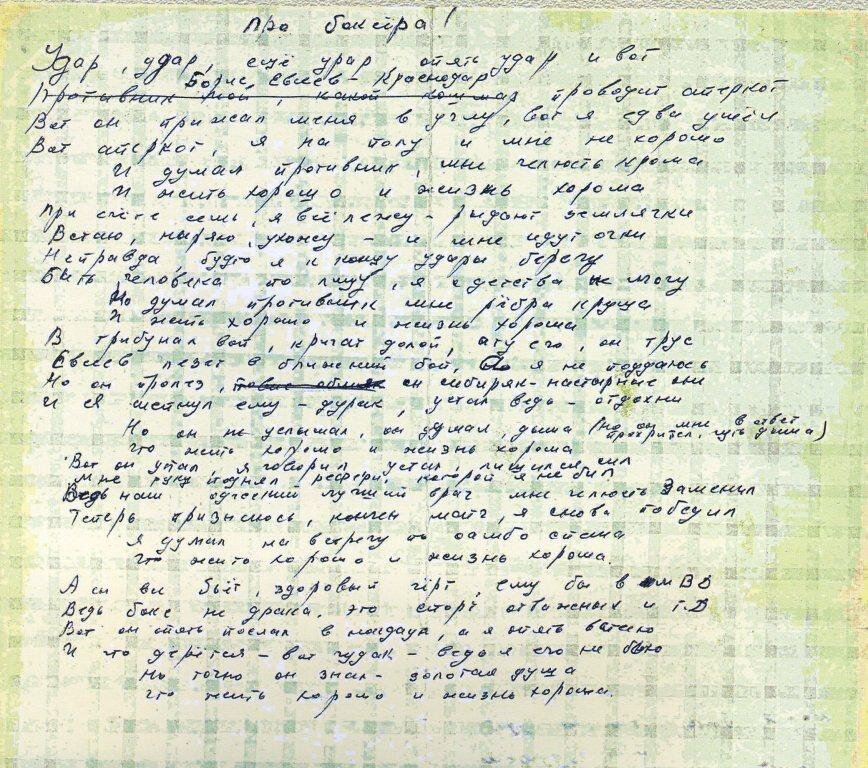 Про боксёра!
Удар, удар, ещё урар, опять удар и вот
Борис, Евсеев - Краснодар
Противник мой, какой кошмар проводит аперкот
Вот он прижал меня в углу, вот я едва ушёл
Вот аперкот, я на полу и мне не хорошо
И думал противник, мне челюсть кроша
И жить хорошо и жизнь хороша
При счёте семь, я всё лежу - рыдают землячки
Встаю, ныряю, ухожу - и мне идут очки
Неправда, будто я к концу удары берегу
Бить человека по лицу, я с детства не могу
Но думал противник мне рёбра круша
И жить хорошо и жизнь хороша
В трибунал вой, кричат долой, ату его, он трус
Евсеев лезет в ближний бой, а я не поддаюсь
Но он пролез, он сибиряк - настырные они
И я шепнул ему - дурак, устал ведь - отдохни
Но он не услышал, он думал, дыша (но он мне в ответ
прохрипел, чуть дыша)
что жить хорошо и жизнь хороша
Вот он упал, я говорил устал, лишился сил
Мне руку поднял рефери, которой я не бил
Ведь наш лучший врач мне челюсть заменил
Теперь признаюсь, кончен матч, я снова победил
Я думал на встречу
Что жить хорошо и жизнь хороша.
А он все бьёт, здоровый чёрт, ему бы в МВД
Ведь бокс не драка, это спорт отважных и т.д
Вот он опять послал в нокдаун, а я опять встаю
И что дерётся - вот чудак - ведь я его не бью
Но точно он знал - золотая душа
что жить хорошо и жизнь хороша.